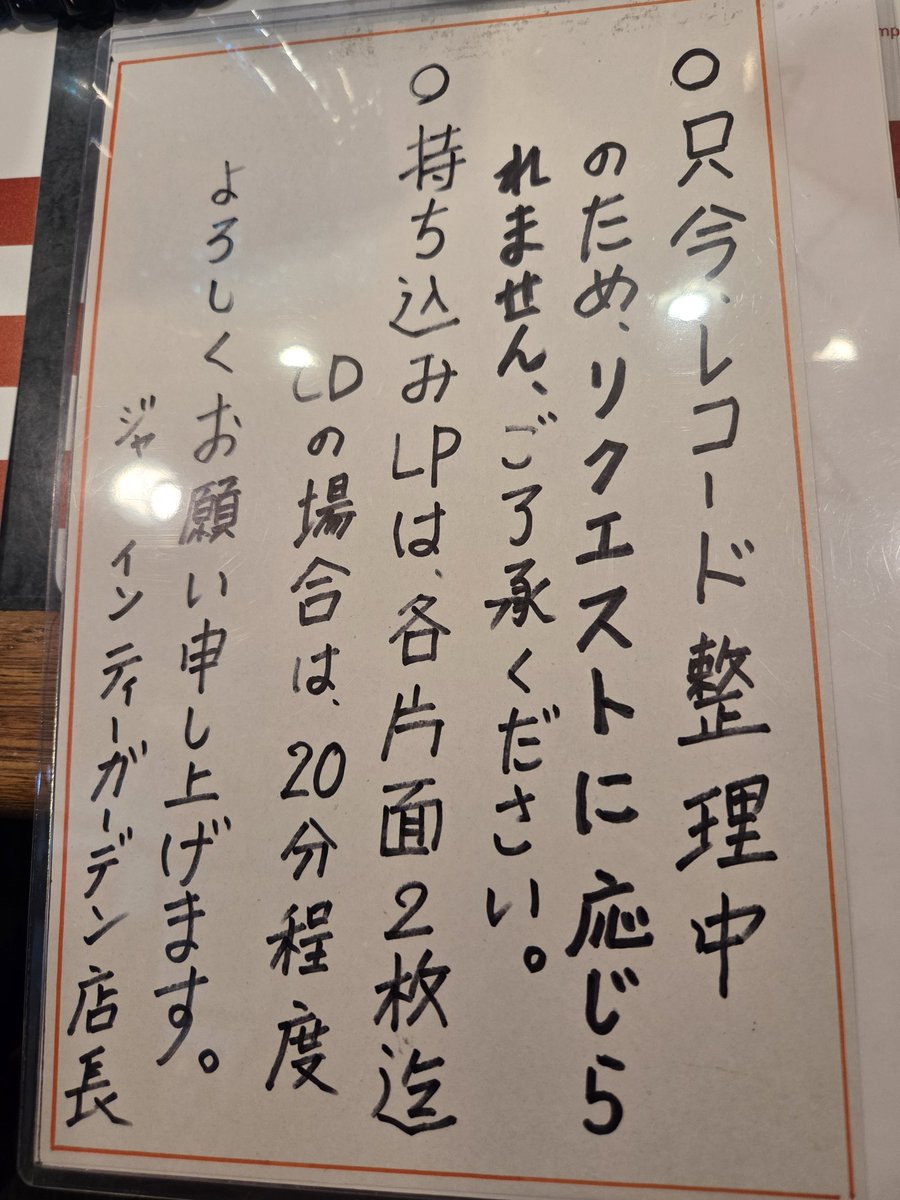 ○只今、レコード整理中
のため、リクエストに応じら
れません、ご了承ください。
○持ち込みLPは、各片面2枚迄
CDの場合は、20分程度
よろしくお願い申し上げます。
ジャ インティーガーデン店長
mp